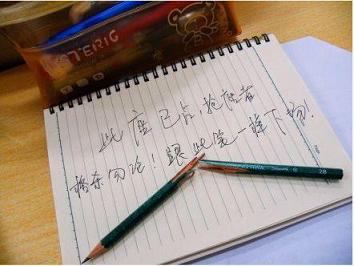 TERIG
此座已占抢座者
格杀勿论!跟此笔一样下场!
2B